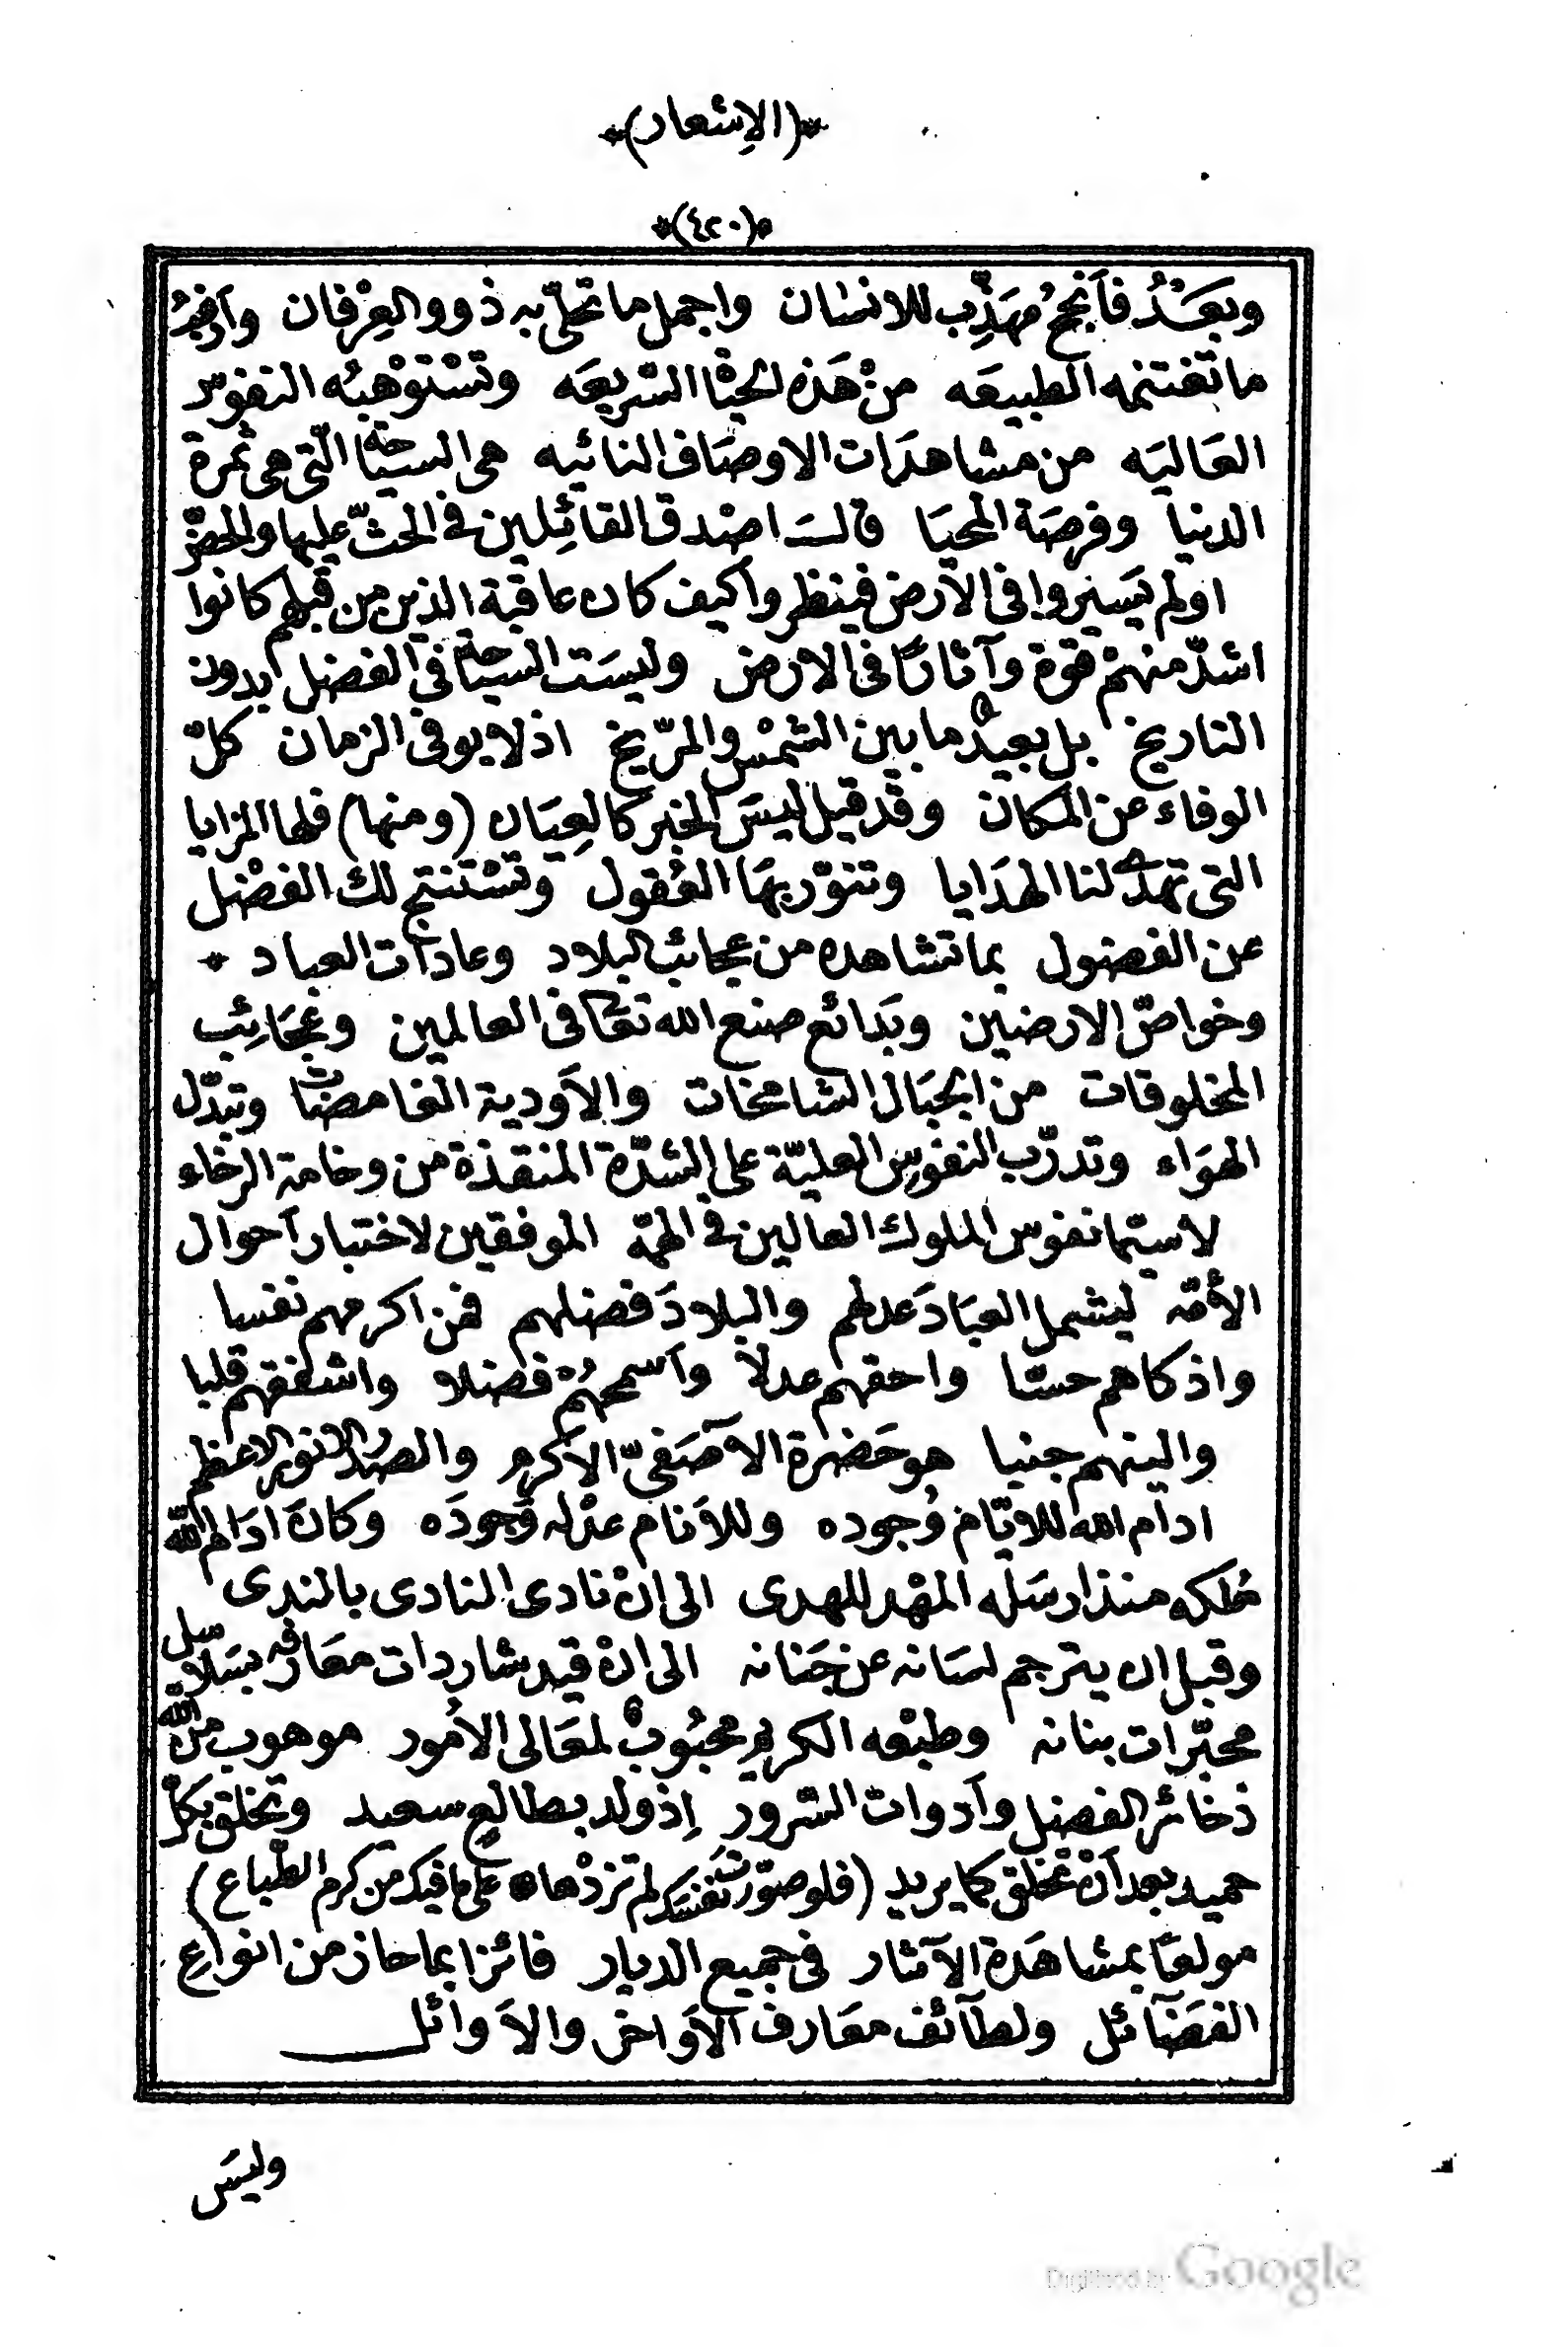 *(الإشعار)*
*(٤٢٠)*
وبَعَـْدُ فأنجحُ مُهَذِّب للانسٰان واجمل ما تحلّى به ذوو العِرْفان وآفخرُ
ما تغتنمه الطبيعَه منْ هَذه الحيٰاة السّريعَه وتسْتوْهبُه النفوسُ
العَاليَه من مشاهدَات الاوصَاف النائيه هى السيٰاحة الّتى هى ثمرة
الدنيا وفرصَة المحيَا قالـَ اصْدق القائِلين فى الحثّ عليها والحضّ
اولم يَسيروا فى الأرض فينظروا كيف كان عاقبة الذين من قبلهم كانوا
اشدّ منهمْ قوّة وآثارًا فى الارض وليسَت السيٰاحة فى الفضل بدون
التاريخ بل بعيدٌ ما بين الشمْس والمرّيخ اذ لا يوفى الزمان كلّ
الوفاء عن المكان وقد قيل ليسَ الخبر كالعِيَان (ومنها) فلها المزايا
التى تهدى لنا الهدَايا وتنوّر بهَا العُقول وتسْتنتج لك الفضْل
عن الفضول بما تشاهده من عجائب البلاد وعادات العباد *
وخواصّ الارضين وبَدائع صنع الله تعالى فى العالمين وعجَائِب
المخلوقات من الجبَال الشامخات والأودية الغامضات وتبدّل
الهوَاء وتدرّب النفوس العليّة على الشدّة المنقذة من وخامة الرخاء
لاسيّما نفوس الملوك العالين فى الهمّة الموفقين لاختبار آحوال
الأمّة ليشمل العبَادَ عدلهم والبلادَ فضلهم فمن اكرمهم نفسا
واذكاهم حسّا واحقهم عدلًا وآسمحهُمْ فضلا واشفقهم قلبا
والينهم جنبا هو حَضرة الآصَفىّ الأكرم والصدر الانور الاعظم
ادام الله للايّام وُجوده وللأنام عدْله وَجودَه وكان ادَام الله
مُلكه منذ ارسَله المهْد للهدى الى انْ نادى النادى بالندى
وقبل ان يترجم لسَانه عن جَنانه الى انْ قيد شاردات معَارفه بسَلاسل
محبّرات بنانه وطبْعه الكريم محبُوبٌ لمعَالى الأمُور موهوب من الله
ذخائر الفضل وآدوات السّرور إذ ولد بطالعٍ سعيد وتخلق بكلّ
حميد بعد آنْ تخلق كما يريد (فلو صوّرت نفسك لم تزدْها * على ما فيك من كرم الطّباع)
مولعًا بمشاهَدة الآثار فى جميع الديار فائزا بما حاز من انواع
الفضَآئل ولطآئف معَارف الأواخر والأوائل
وليسَ
Digitized by Google